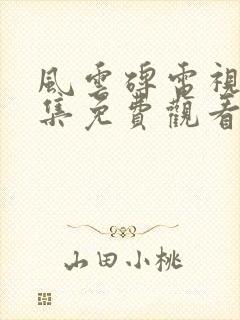 風雲碑電視
集免費觀看
山田小桃